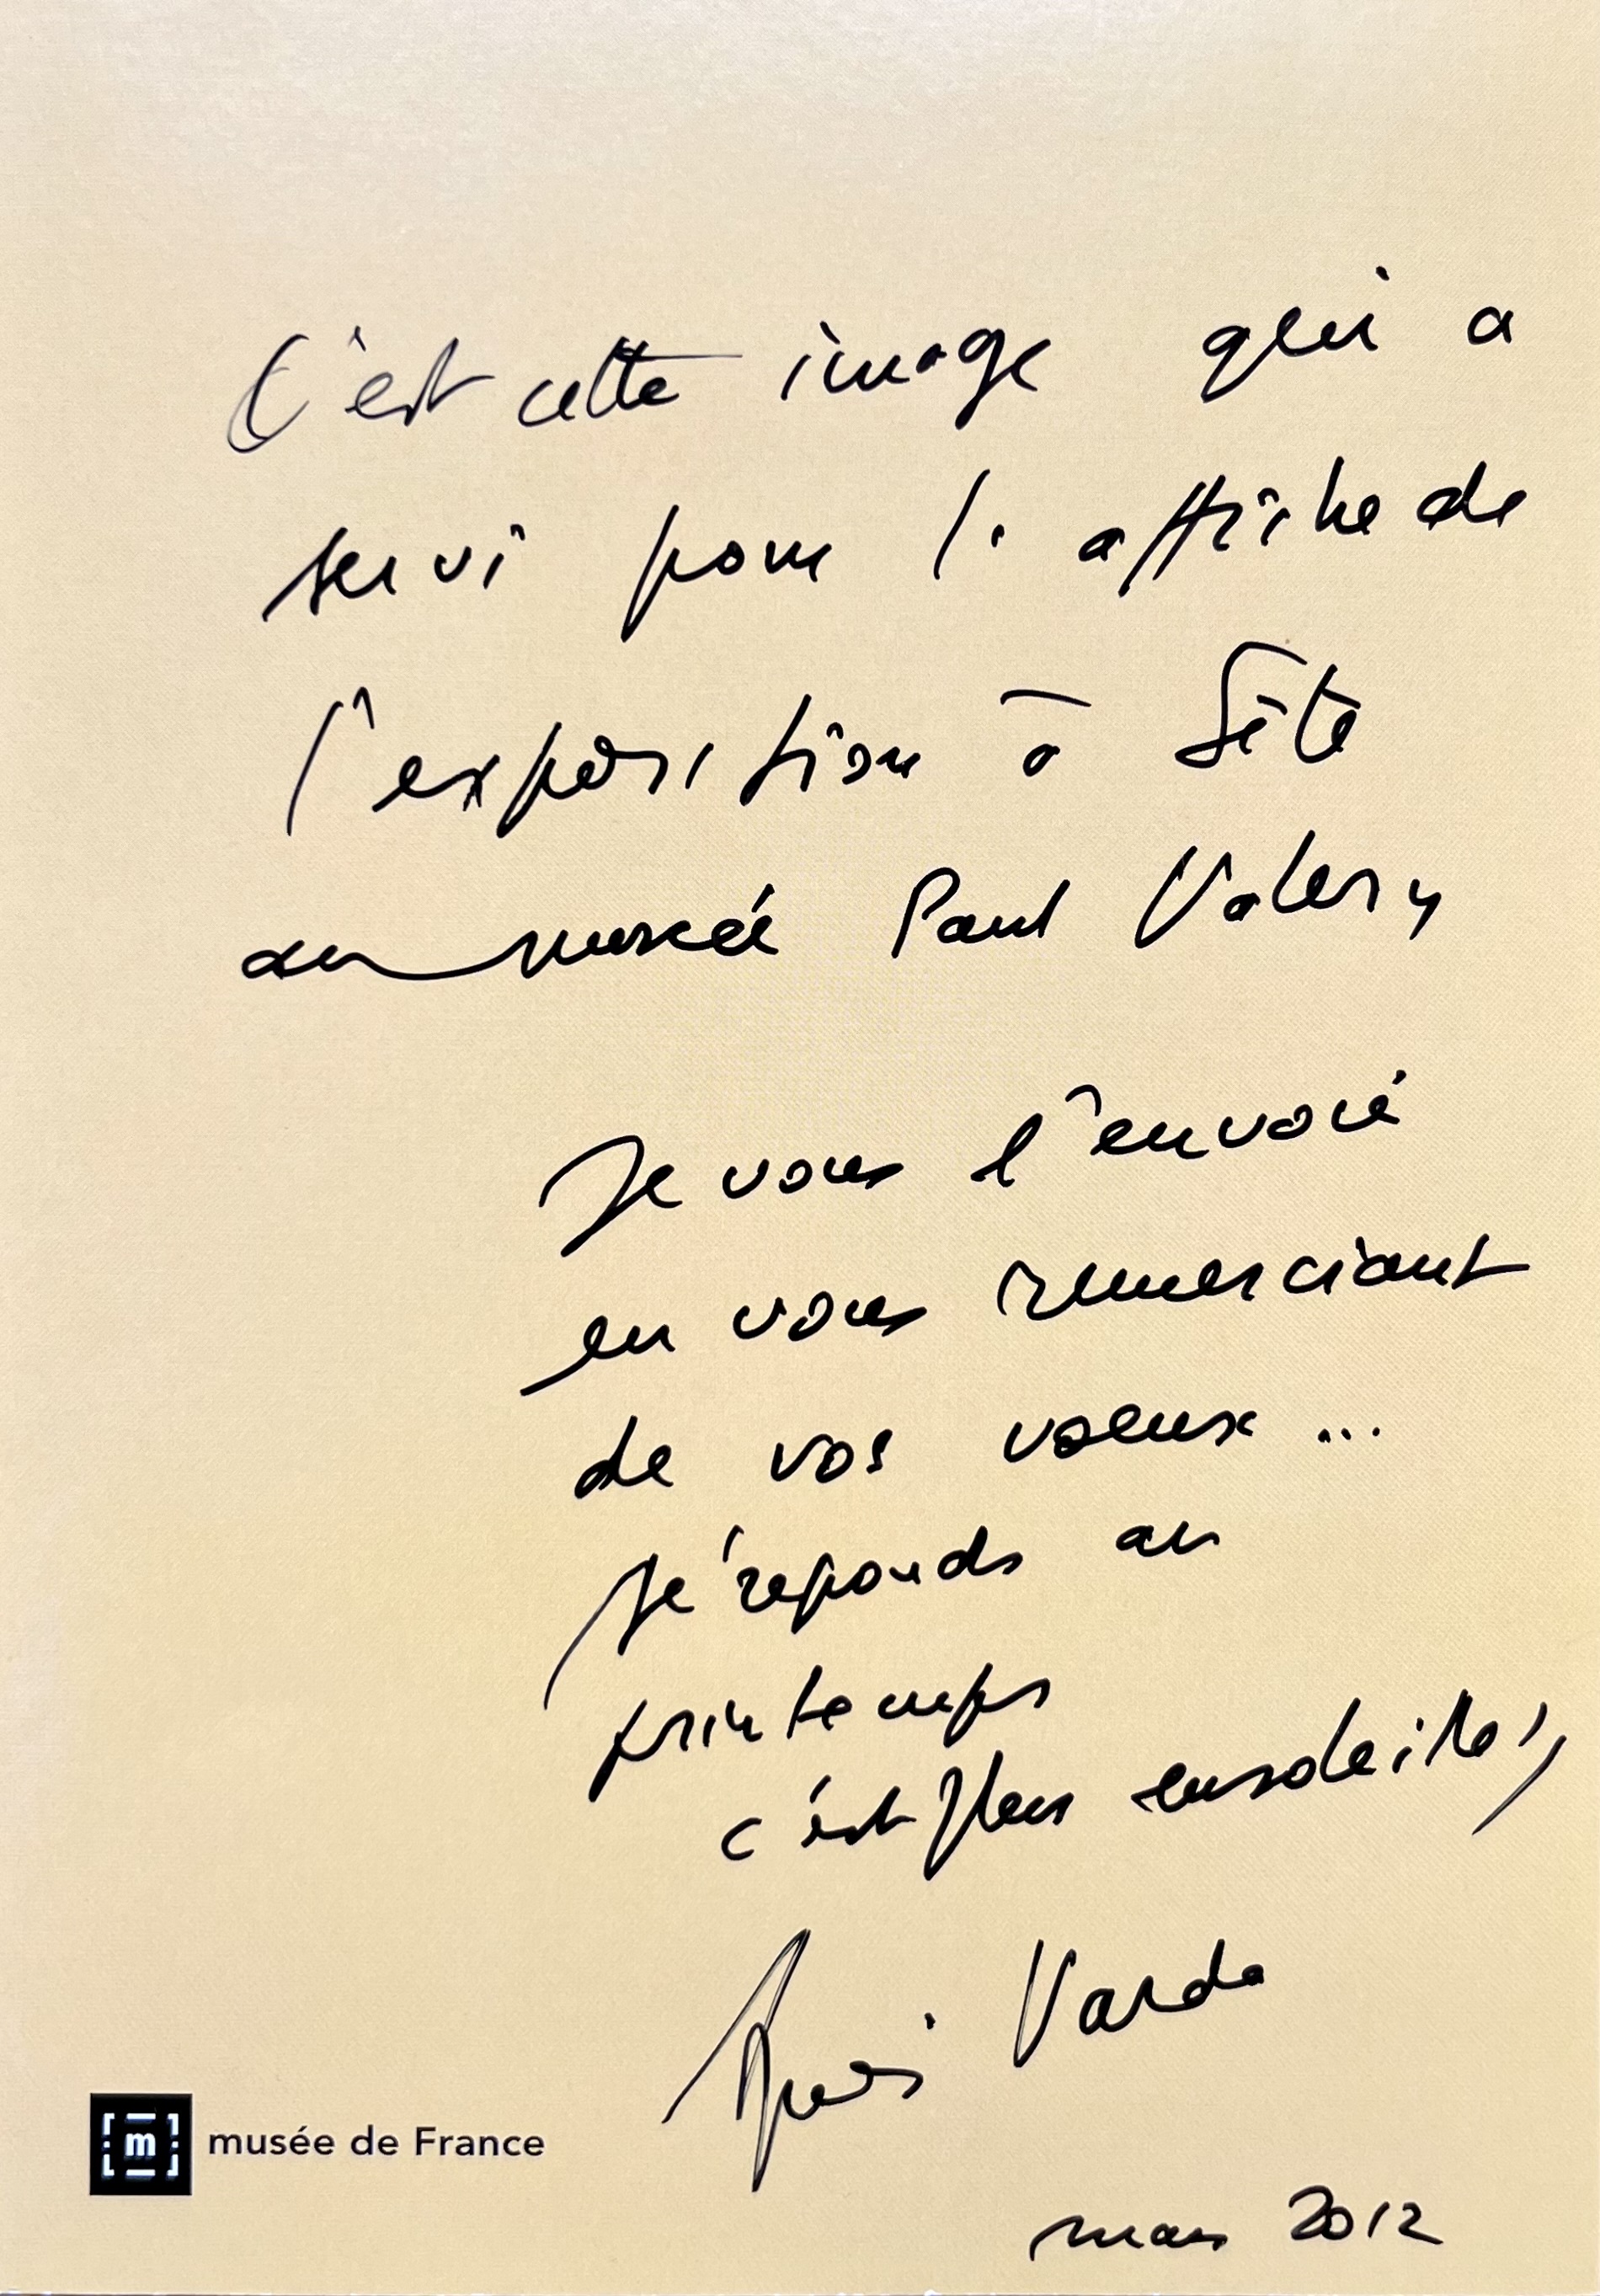 C'est cette image qui a
servi pour l'affiche de
l'exposition à Sète
au musée Paul Valery
Je vous l'envoie
en vous remerciant
de vos voeux ...
Je réponds au
printemps
c'est plus ensoleillé,
Agnès Varda
musée de France
mars 2012